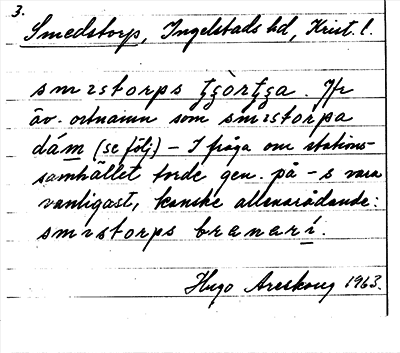 3.
Smedstorp, Ingelstads hd, Krist. l.
smɪstorps ꞎʒòrꞎʒa. Jfr
äv. ortnamn som smɪstorpa
dám (se följ) – I fråga om stations-
samhället torde gen. på -s vara
vanligast, kanske allenarådande:
smɪstorps brɐnɐrí.
Hugo Areskoug 1963.